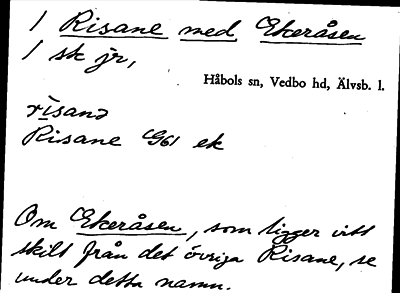 1 Risane med Ekeråsen
1 sk jr,
Håbols sn, Vedbo hd, Älvsb. l.
rìsanə
Risane G61 ek
Om Ekeråsen, som ligger vitt
skilt från det övriga Risane, se
under detta namn.